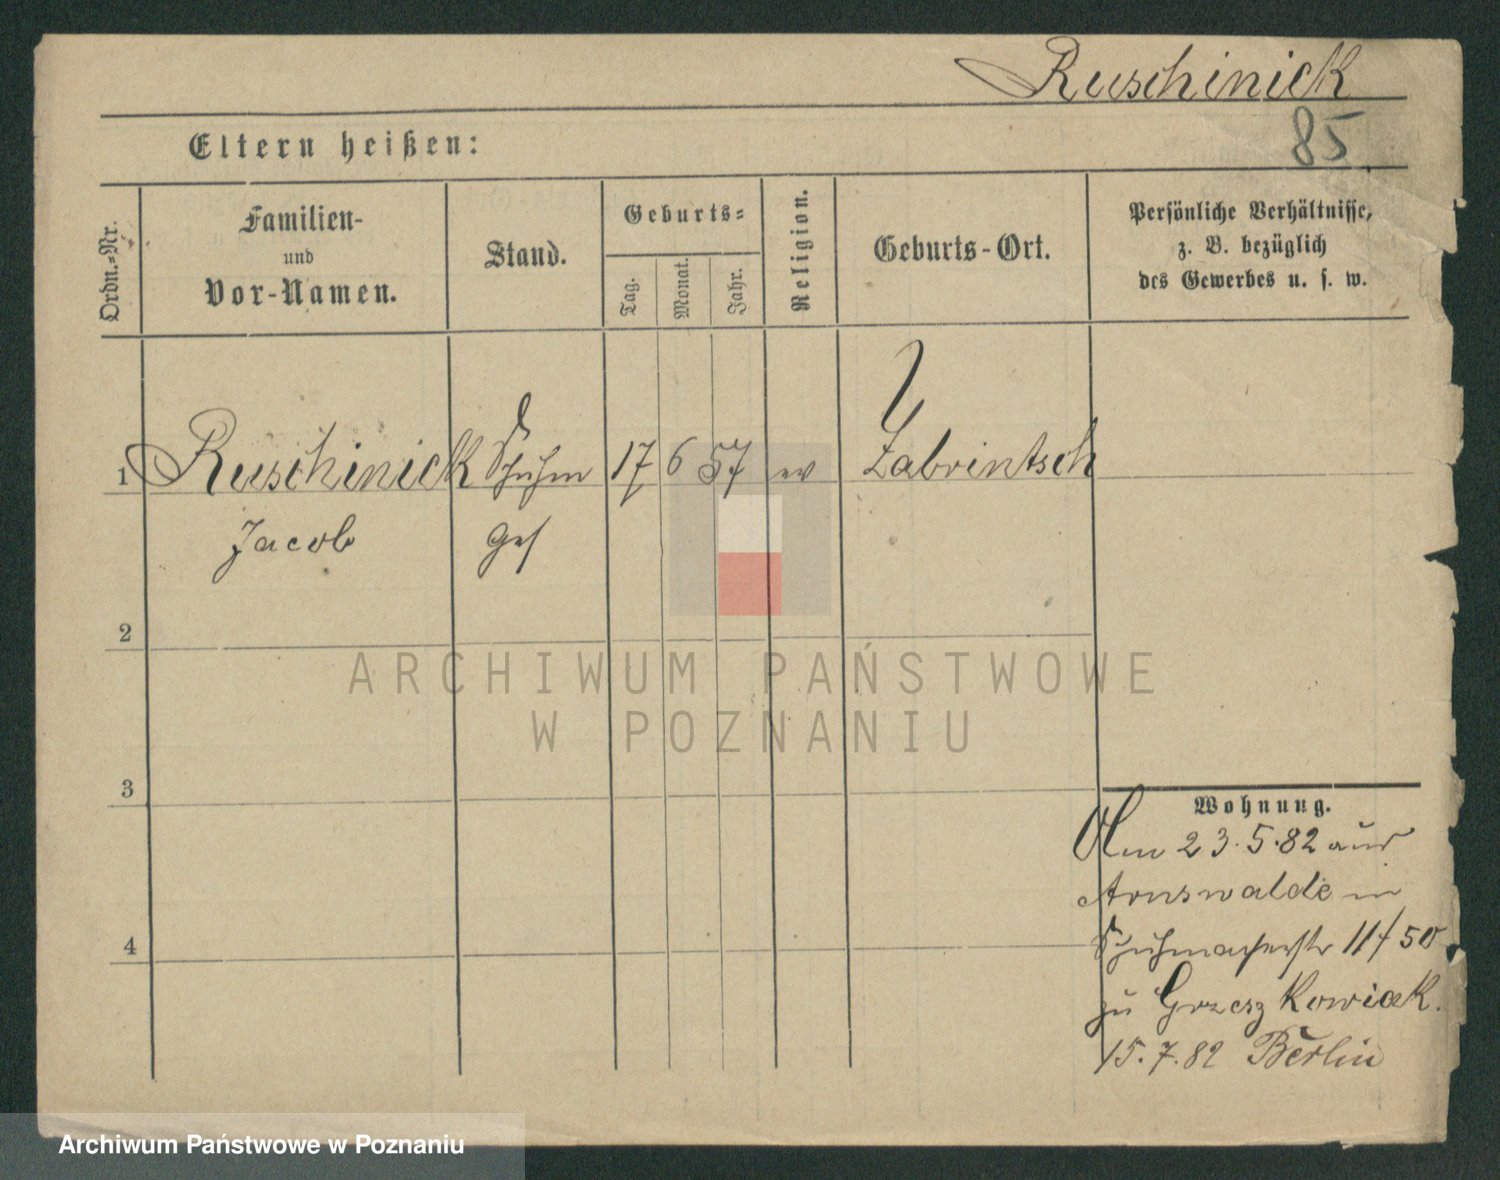 Ruschinick
85
Eltern heißen:
Ordn.-Nr.
Familien-
und
Vor-Namen.
Stand.
Geburts-
Tag.
Monat.
Jahr.
Religion.
Geburts-Ort.
Persönliche Verhältnisse,
z. B. bezüglich
des Gewerbes u. s. w.
1 Ruschinick Schuhm 17 6 57 ev Zabrintsch
Jacob Ges
2
ARCHIWUM PAŃSTWOWE
W POZNANIU
3
Wohnung.
Am 23.5.82 aus
Arnswalde in
Schuhmacherstr 11/50
zu Grzeszkowiak.
4
15.7.82 Berlin
Archiwum Państwowe w Poznaniu